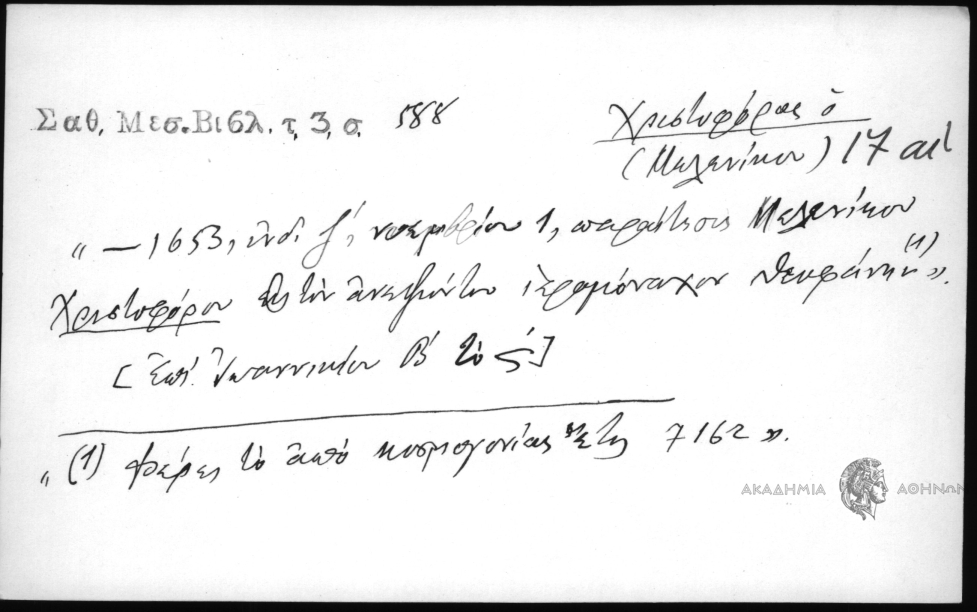 Σαθ. Μεσ. Βιβλ. τ. 3, σ. 588
Χριστοφόρος ὁ
(Μελενίκου) 17 αἰ
"— 1653, ἰνδ. ζ', νοεμβρίου 1, παραίτησις Μελενίκου
Χριστοφόρου εἰς τὸν ἀνεψιόν του ἱερομόναχον Θεοφάνην (1)».
[Ἐπὶ Ἰωαννικίου Β' τὸ ς']
"(1) Φέρει τὸ ἀπὸ κοσμογονίας ἔτος 7162».
ΑΚΑΔΗΜΙΑ ΑΘΗΝΩΝ